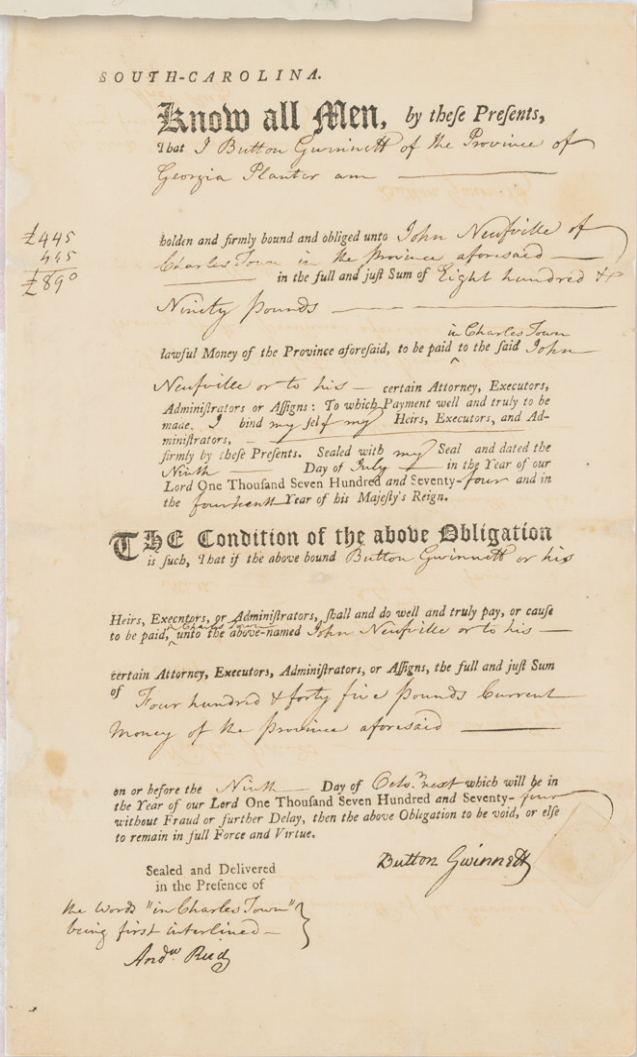 SOUTH-CAROLINA.
Know all Men, by these Presents,
That I Button Gwinnett of the Province of
Georgia Planter am
£445
445
£890
holden and firmly bound and obliged unto John Neufville of
Charles Town in the Province aforesaid
in the full and just Sum of Eight hundred &
Ninety pounds
in Charles Town
lawful Money of the Province aforesaid, to be paid ^ to the said John
Neufville or to his certain Attorney, Executors,
Administrators or Assigns: To which Payment well and truly to be
made. I bind my self my Heirs, Executors, and Ad-
ministrators,
firmly by these Presents. Sealed with my Seal and dated the
Ninth Day of July in the Year of our
Lord One Thousand Seven Hundred and Seventy-four and in
the fourteenth Year of his Majesty's Reign.
THE Condition of the above Obligation
is such, That if the above bound Button Gwinnett or his
Heirs, Executors, or Administrators, shall and do well and truly pay, or cause
in Charles Town
to be paid, ^ unto the above-named John Neufville or to his
certain Attorney, Executors, Administrators, or Assigns, the full and just Sum
of Four hundred & forty five pounds Current
Money of the Province aforesaid
on or before the Ninth Day of Octor. next which will be in
the Year of our Lord One Thousand Seven Hundred and Seventy-four
without Fraud or further Delay, then the above Obligation to be void, or else
to remain in full Force and Virtue.
Button Gwinnett
Sealed and Delivered
in the Presence of
the Words "in Charles Town"
being first interlined
Andw. Reid